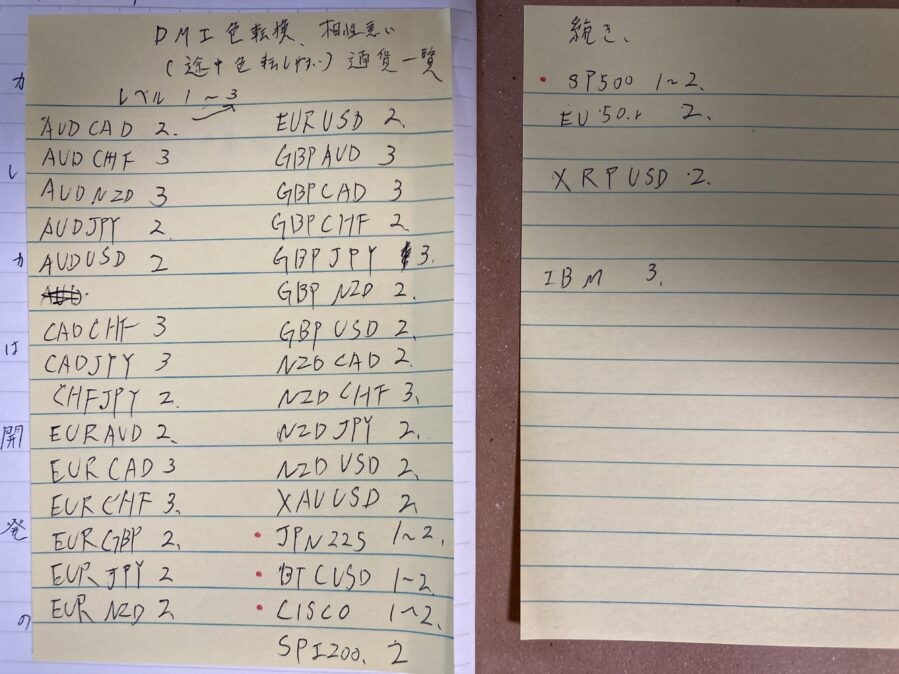 DMI色転換、相性悪い
(途中色転しやすい)通貨一覧
レベル 1~3
AUDCAD 2.
AUDCHF 3
AUDNZD 3
AUDJPY 2.
AUDUSD 2
CADCHF 3
CADJPY 3
CHFJPY 2.
EURAUD 2、
EURCAD 3
EURCHF 3、
EURGBP 2、
EURJPY 2
EURNZD 2
EURUSD 2、
GBPAUD 3
GBPCAD 3
GBPCHF 2、
GBPJPY 3.
GBPNZD 2.
GBPUSD 2、
NZDCAD 2、
NZDCHF 3、
NZDJPY 2、
NZDUSD 2、
XAUUSD 2、
・JPN225 1~2、
・BTCUSD 1~2
・CISCO 1~2、
SPI200、 2
続き、
・SP500 1~2、
EU50 2、
XRPUSD 2.
IBM 3、
カ
し
カ
は
開
発
の